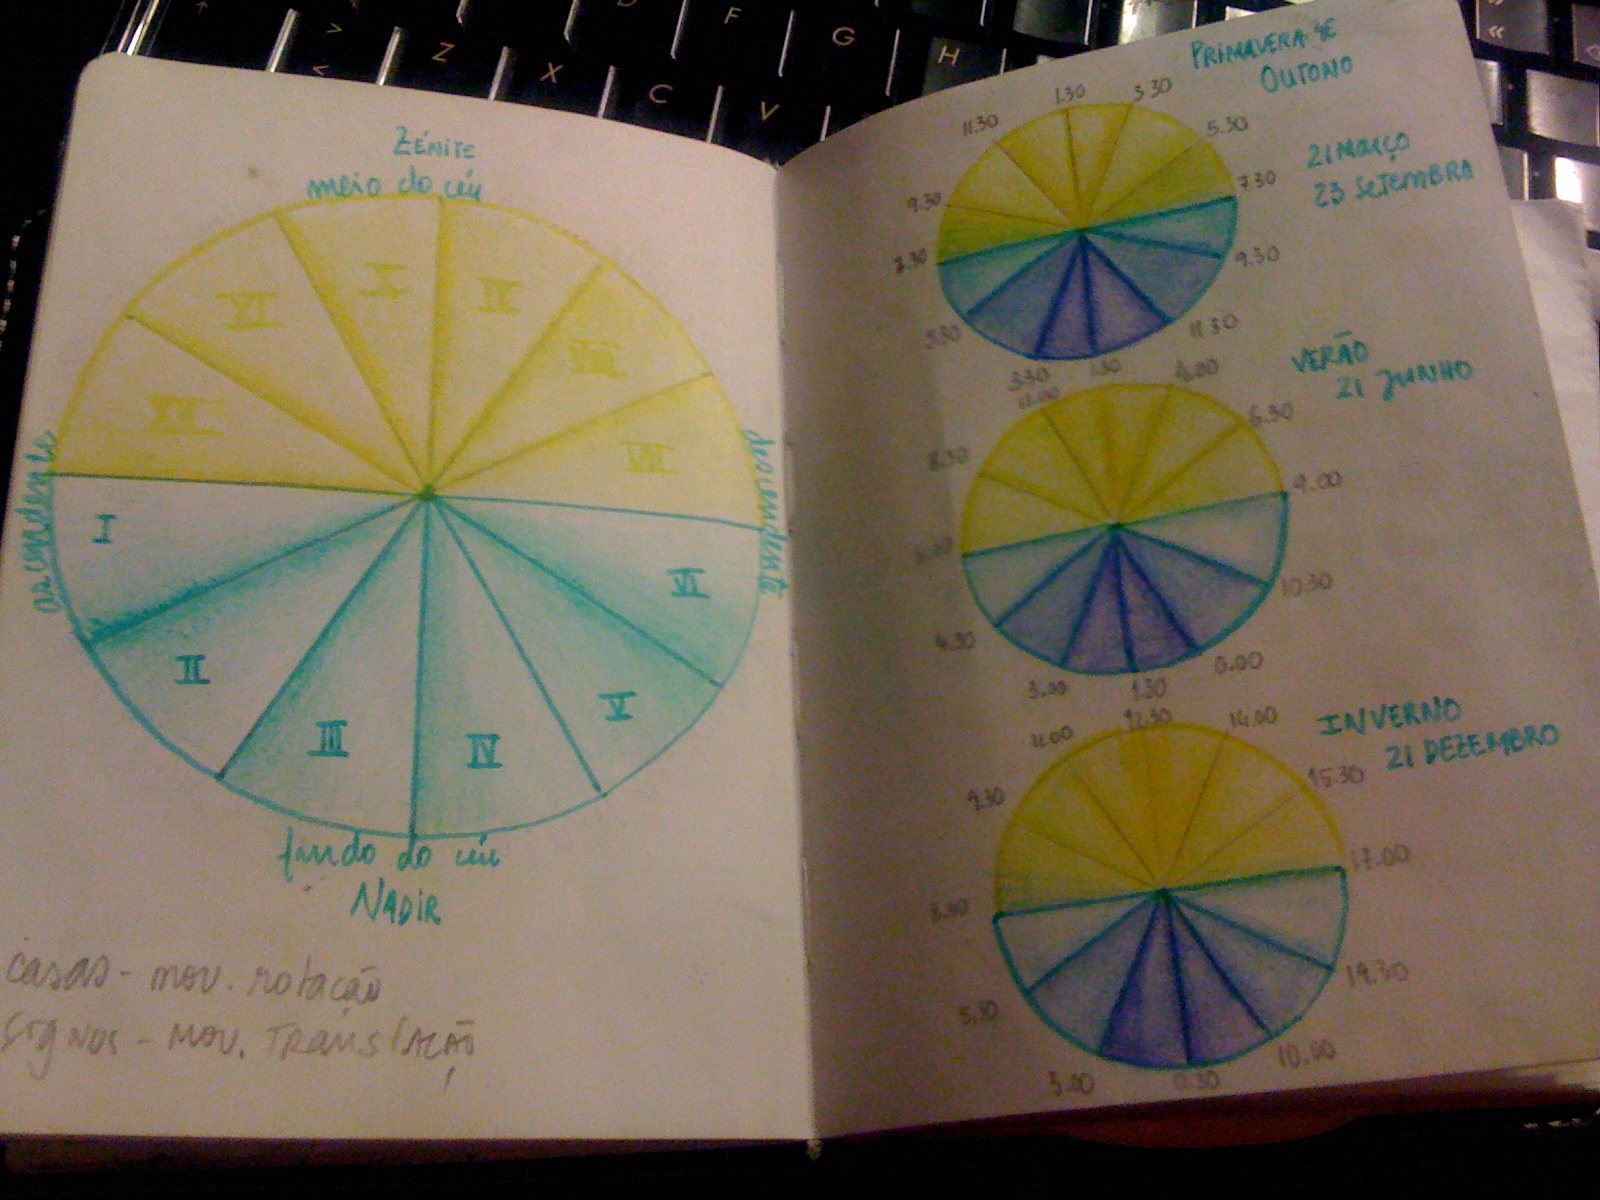 Zénite
meio do céu
XI
X
IX
VIII
XII
VII
ascendente
descendente
I
VI
II
V
III
IV
fundo do céu
Nadir
casas - mov. rotação
signos - mov. Translação
Primavera e
Outono
21 Março
23 Setembro
1.30
3.30
11.30
5.30
9.30
7.30
7.30
9.30
5.30
11.30
3.30
1.30
Verão
21 Junho
11.00
4.00
6.30
8.30
9.00
10.30
4.30
0.00
3.00
1.30
Inverno
21 Dezembro
12.30
14.00
11.00
15.30
9.30
17.00
8.00
19.30
5.30
10.00
3.00
0.30
Z
X
C
V
F
G
H